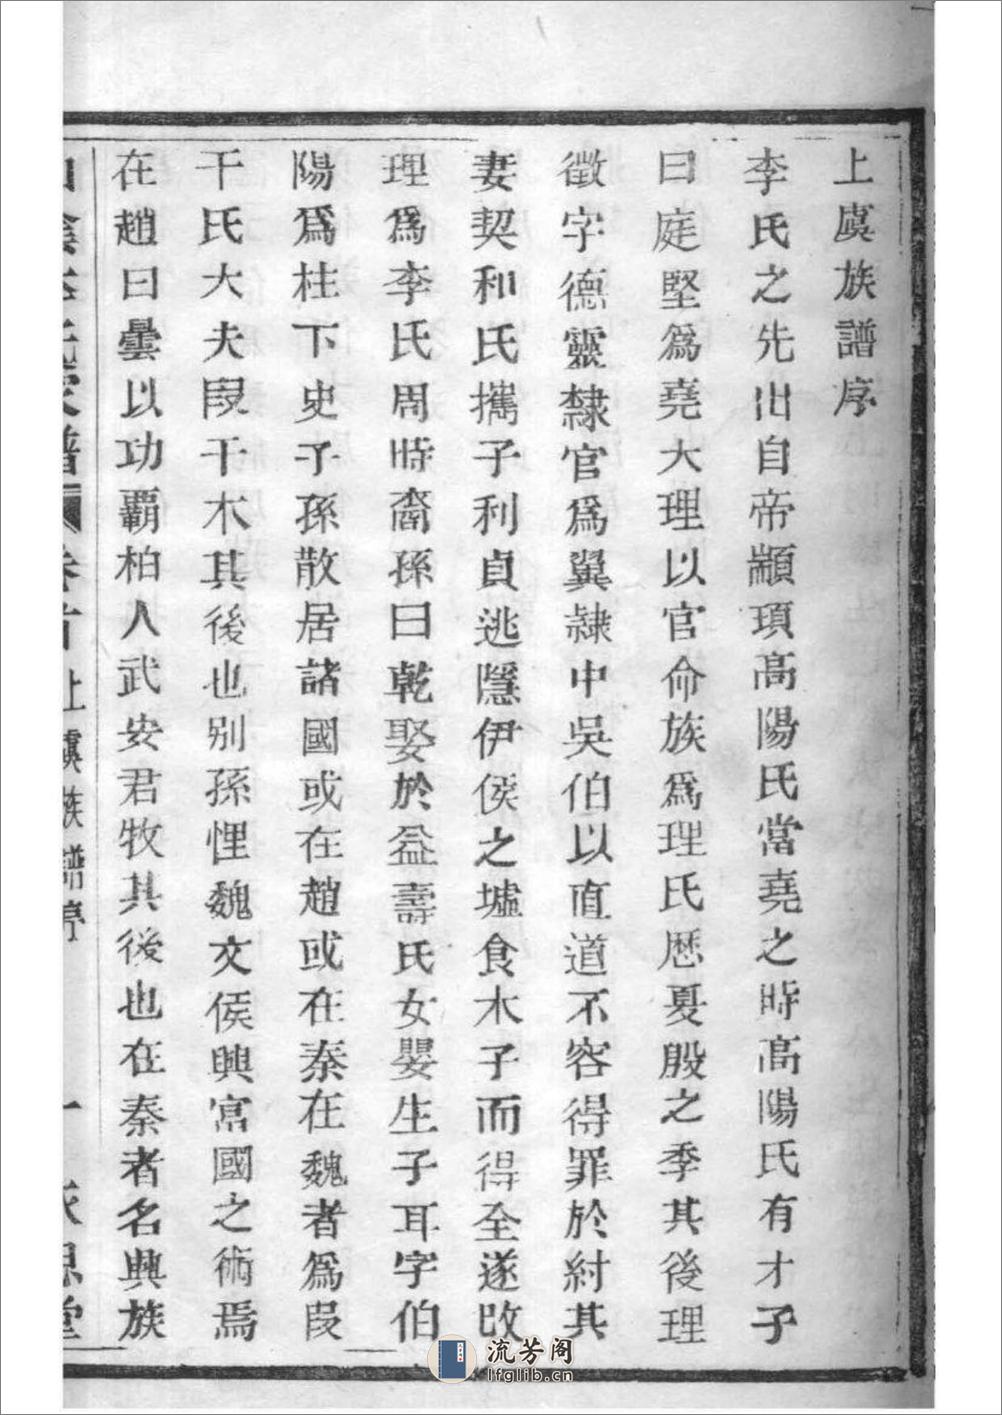 上虞族譜序
李氏之先出自帝顓頊高陽氏當堯之時高陽氏有才子
曰庭堅爲堯大理以官命族爲理氏歷夏殷之季其後理
徵字德靈隸官爲翼隸中吳伯以直道不容得罪於紂其
妻契和氏攜子利貞逃隱伊侯之墟食木子而得全遂改
理爲李氏周時裔孫曰乾娶於益壽氏女嬰生子耳字伯
陽爲柱下史子孫散居諸國或在趙或在秦在魏者爲段
干氏大夫段干木其後也别孫悝魏文侯興富國之術焉
在趙曰曇以功覇柏人武安君牧其後也在秦者名興族
李氏家譜 卷首 上虞族譜序 一 思堂
流芳阁
lfglib.cn